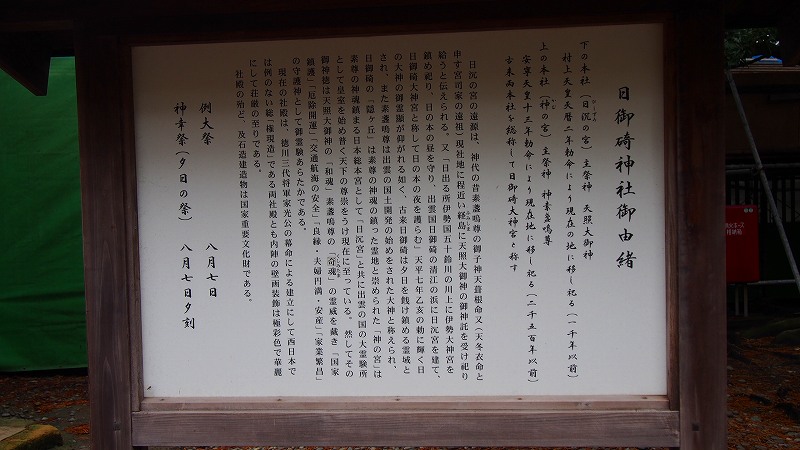 日御碕神社御由緒
下の本社（日沉の宮）主祭神　天照大御神
村上天皇天暦二年勅命により現在の地に移し祀る（一千年以前）
上の本社（神の宮）主祭神　神素盞嗚尊
安寧天皇十三年勅命により現在地に移し祀る（二千五百年以前）
古来両本社を総称して日御碕大神宮と称す
日沉の宮の遠源は、神代の昔素盞嗚尊の御子神天葺根命又（天冬衣命と
申す宮司家の遠祖）現社地に程近い経島に天照大御神の御神託を受け祀り
給うと伝えられる。又「日出る所伊勢国五十鈴川の川上に伊勢大神宮を
鎮め祀り、日の本の昼を守り、出雲国日御碕の清江の浜に日沉宮を建て、
日御碕大神宮と称して日の本の夜を護らむ」天平七年乙亥の勅に輝く日
の大神の御霊顕が仰がれる如く、古来日御碕は夕日を餞け鎮める霊域と
され、また素盞嗚尊は出雲の国土開発の始めをされた大神と称えられ、
日御碕の「隠ヶ丘」は素尊の神魂の鎮った霊地と崇められた「神の宮」は
素尊の神魂鎮まる日本総本宮として「日沉宮」と共に出雲の国の大霊験所
として皇室を始め普く天下の尊崇をうけ現在に至っている。然してその
御神徳は天照大御神の「和魂」素盞嗚尊の「奇魂」の霊威を戴き「国家
鎮護」「厄除開運」「交通航海の安全」「良縁・夫婦円満・安産」「家業繁昌」
の守護神として御霊験あらたかである。
現在の社殿は、徳川三代将軍家光公の幕命による建立にして西日本で
は例のない総「権現造」である両社殿とも内陣の壁画装飾は極彩色で華麗
にして荘厳の至りである。
社殿の殆ど、及石造建造物は国家重要文化財である。
例大祭　　八月七日
神幸祭（夕日の祭）　八月七日夕刻